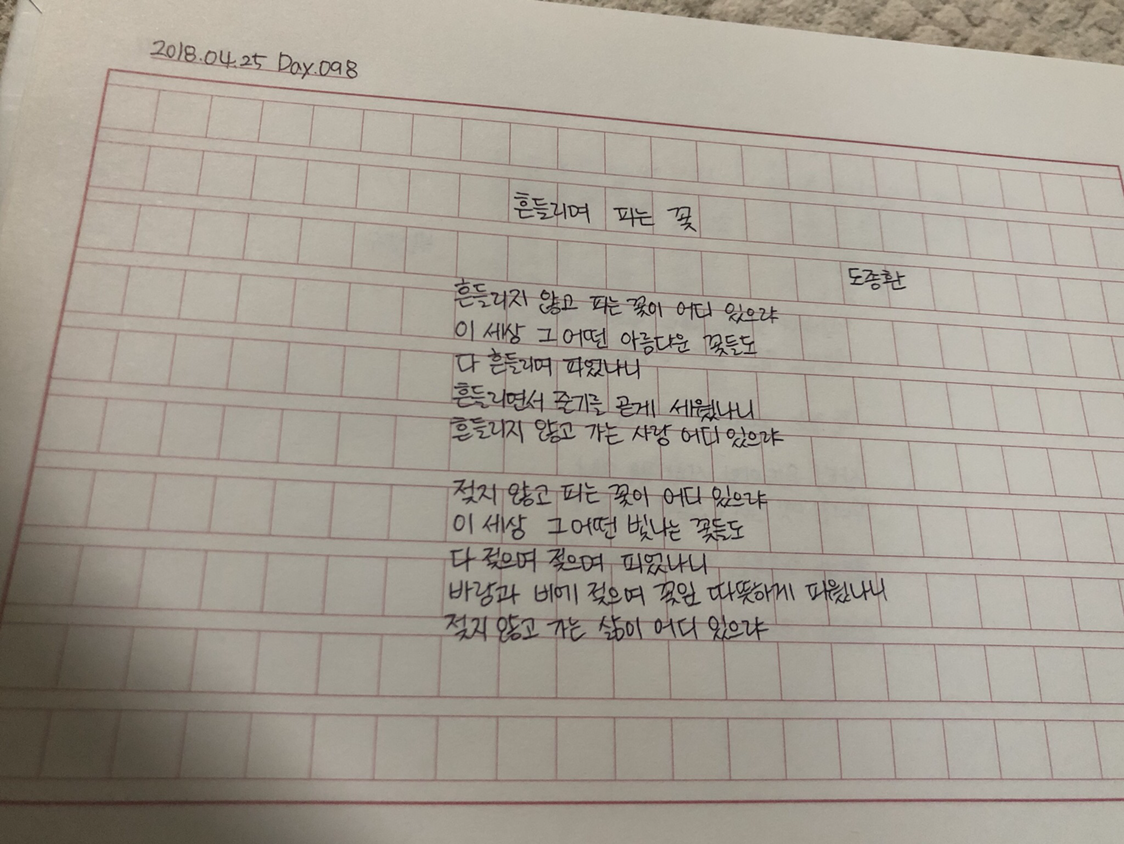 2018.04.25 Day.098
흔들리며 피는 꽃
도종환
흔들리지 않고 피는 꽃이 어디 있으랴
이 세상 그 어떤 아름다운 꽃들도
다 흔들리며 피었나니
흔들리면서 줄기를 곧게 세웠나니
흔들리지 않고 가는 사랑 어디 있으랴
젖지 않고 피는 꽃이 어디 있으랴
이 세상 그 어떤 빛나는 꽃들도
다 젖으며 젖으며 피었나니
바람과 비에 젖으며 꽃잎 따뜻하게 피웠나니
젖지 않고 가는 삶이 어디 있으랴